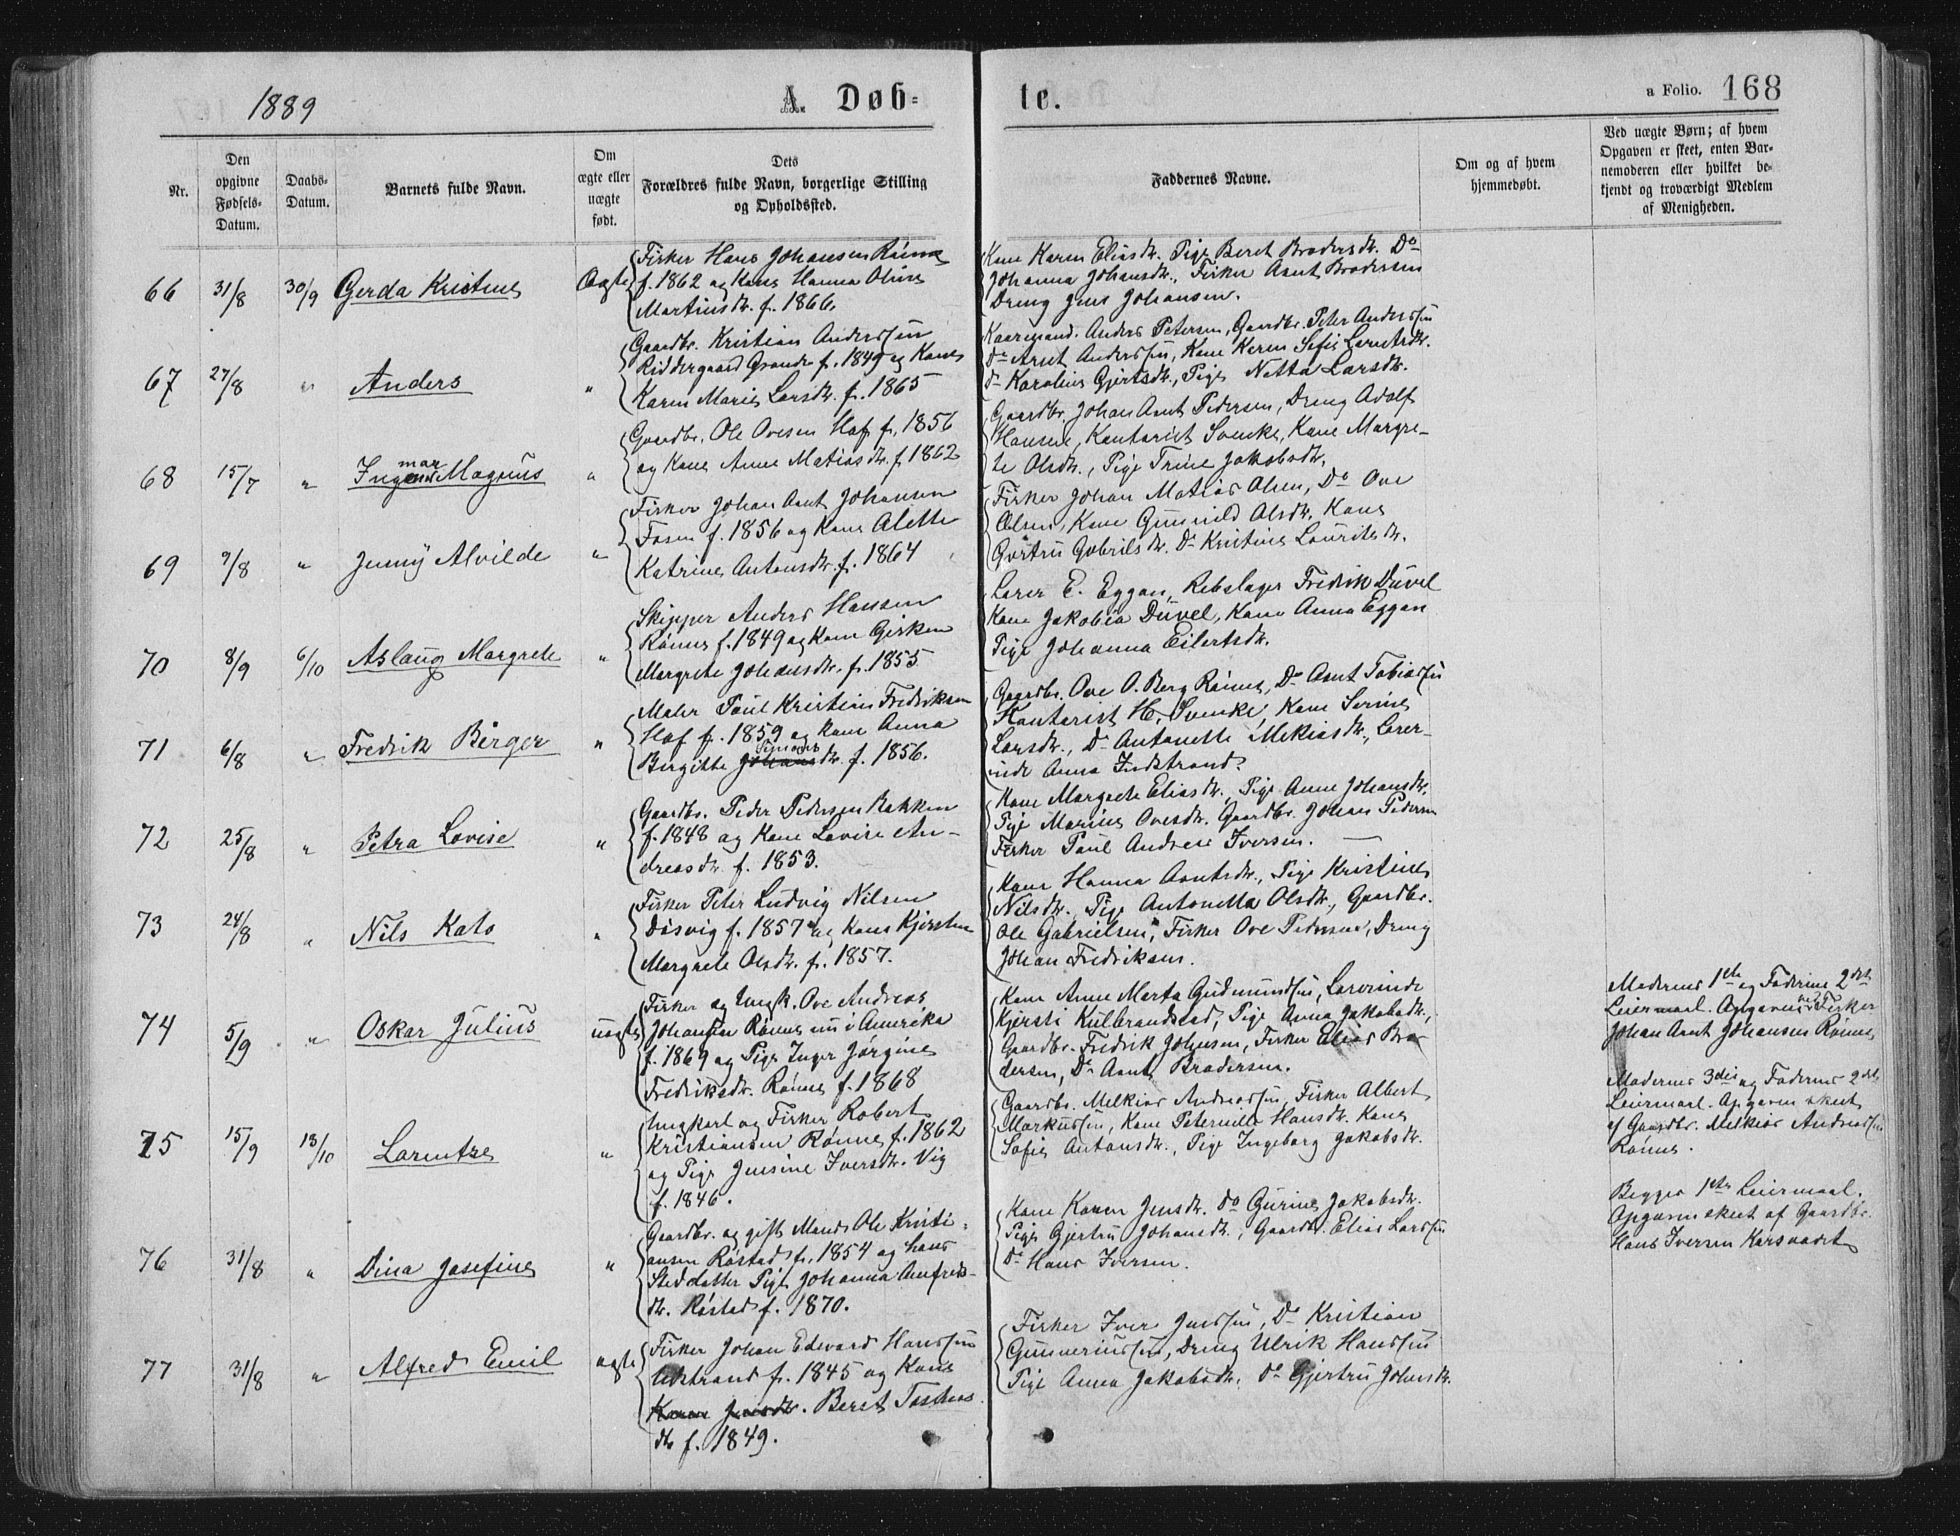 1889
A. Døb-
te.
a Folio. 168
Nr.
Den
opgivne
Fødsels-
Datum.
Daabs-
Datum.
Barnets fulde Navn.
Om
ægte eller
uægte
født.
Dets
Forældres fulde Navn, borgerlige Stilling
og Opholdssted.
Faddernes Navne.
Om og af hvem
hjemmedøbt.
Ved uægte Børn; af hvem
Opgaven er skeet, enten Bar-
nemoderen eller hvilket be-
kjendt og troværdigt Medlem
af Menigheden.
66 31/8 30/9 Gerda Kristine Ægte
Fisker Hans Johansen Rønne
f. 1862 og Kone Hanna Oline
Martinsdr. f. 1866.
Kone Karen Eliasdr. Pige Beret Brodersdr. Do
Johanna Johansdr., Fisker Arnt Brodersen
Dreng Jens Johansen.
67 27/8 " Anders "
Gaardbr. Kristian Anderssen
Riddergaard Grande f. 1849 og Kone
Karen Marie Larsdr. f. 1865
Kaarmand. Anders Petersen, Gaardbr. Peter Anderssen
Do Arnt Anderssen, Kone Karen Sofie Larsdr.
Do Karoline Gjertsdr., Pige Netta Larsdr.
68 15/7 " Ingemar Magnus "
Gaardbr. Ole Ovesen Hof f. 1856
og Kone Anne Matiasdr. f. 1862
Gaardbr. Johan Arnt Pedersen, Dreng Adolf
Hansen, Kontorist Svenke, Kone Margre-
te Olsdr., Pige Trine Jakobsdr.
69 9/8 " Jenny Alvilde "
Fisker Johan Arnt Johansen
Fosen f. 1856 og Kone Alette
Katrine Antonsdr. f. 1864
Fisker Johan Matias Olsen, Do Ove
Olsen, Kone Gunnild Olsdr. Kone
Gortru Gabrilsdr. Do Kristine Lauritsdr.
70 8/9 6/10 Aslaug Margrete "
Skipper Anders Hansen
Rønne f. 1849 og Kone Girken
Margrete Johansdr. f. 1855
Lærer E. Eggan, Rebslager Fredrik Düvel
Kone Jakobia Düvel, Kone Anna Eggan
Pige Johanna Eilertsdr.
71 6/8 " Fredrik Birger "
Maler Paul Kristian Fredriksen
Hof f. 1859 og Kone Anna
Birgitte Johansdr. Simonsdr. f. 1856.
Gaardbr. Ove O. Berg Rønne, Do Arnt Tobiassen
Kontorist H. Svenke, Kone Serine
Larsdr., Do Antonette Mekiasdr., Lærer-
inde Anna Indstrand.
72 25/8 " Petra Lovise "
Gaardbr. Peder Pedersen Bakken
f. 1848 og Kone Lovise An-
dreasdr f. 1853.
Kone Margrete Eliasdr., Pige Anne Johansdr.
Pige Marine Ovesdr. Gaardbr. Johan Pedersen
Fisker Paul Andreas Iversen.
73 24/8 " Nils Kato "
Fisker Peter Ludvig Nilsen
Døsvig f. 1857 og Kone Kjersten
Margrete Olsdr. f. 1857.
Kone Hanna Arntsdr., Pige Kristine
Nilsdr., Pige Antonetta Olsdr., Gaardbr.
Ole Gabrielsen, Fisker Ove Pedersen, Dreng
Johan Fredriksen.
74 5/9 " Oskar Julius uægte
Fisker og Ungk. Ove Andreas
Johansen Rønne nu i Amerika
f. 1869 og Pige Inger Jørgine
Fredriksdr. Rønne f. 1868
Kone Anne Marta Gudmundsen, Lærerinde
Kjersti Kulbrandstad, Pige Anna Jakobsdr.,
Gaardbr. Fredrik Johnsen, Fisker Elias Bro-
dersen, Do Arnt Brodersen.
Moderens 1ste og Faderens 2det
Leiermaal. Opgaven ved Fisker
Johan Arnt Johansen Rønne
75 15/9 13/10 Larentze "
Ungkarl og Fisker Robert
Kristiansen Rønne f. 1862
og Pige Jensine Iversdr. Vig
f. 1846.
Gaardbr. Melkior Andreassen, Fisker Albert
Markussen, Kone Peternille Hansdr. Kone
Sofie Antonsdr., Pige Ingeborg Jakobsdr.
Moderens 3die og Faderens 2det
Leiermaal. Opgaven skeet
af Gaardbr. Melkior Andreassen
Rønne.
76 31/8 " Dina Josefine "
Gaardbr. og gift Mand Ole Kristi-
ansen Røstad f. 1854 og hans
Steddatter Pige Johanna Arnfreds-
dr. Røstad f. 1870.
Kone Karen Jensdr. Do Gurine Jakobsdr.
Pige Gjertru Johansdr., Gaardbr. Elias Larssen
Do Hans Iversen.
Begges 1ste Leiermaal.
Opgaven skeet af Gaardbr.
Hans Iversen Karsvaadet
77 31/8 " Alfred Emil ægte
Fisker Johan Edvard Hanssen
Ulstrand f. 1845 og Kone
Karen Jensdr. Beret Tøsten-
dr f. 1849.
Fisker Iver Jenssen, Do Kristian
Gunneriussen, Dreng Ulrik Hanssen
Pige Anna Jakobsdr. Do Gjertru Johnsdr.